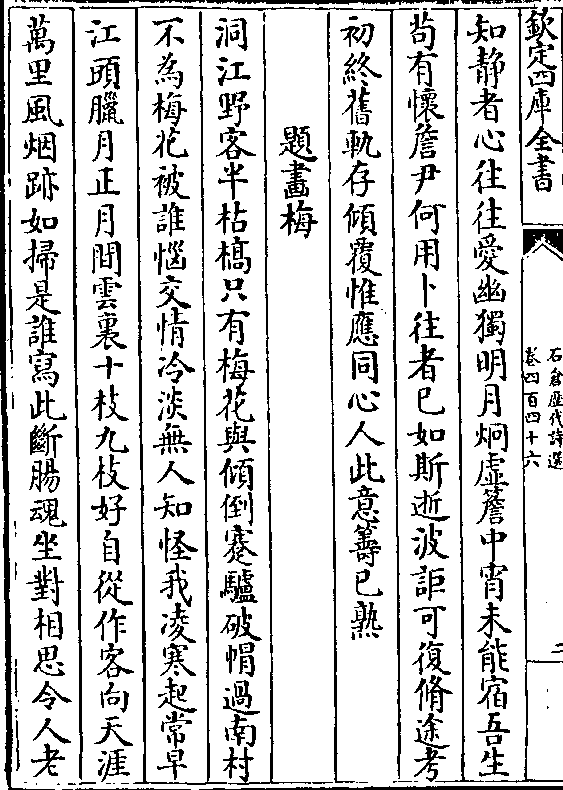 欽定四庫全書
石倉歷代詩選
卷四百四十六
二
知静者心往往愛幽獨明月炯虚簷中宵未能宿吾生
茍有懷詹尹何用卜往者已如斯逝波詎可復脩途考
初終舊軌存傾覆惟應同心人此意籌已熟
題畫梅
洞江野客半枯槁只有梅花與傾倒蹇驢破帽過南村
不為梅花被誰惱交情冷淡無人知怪我凌寒起常早
江頭臘月正月間雲裏十枝九枝好自從作客向天涯
萬里風烟跡如掃是誰寫此斷腸魂坐對相思令人老